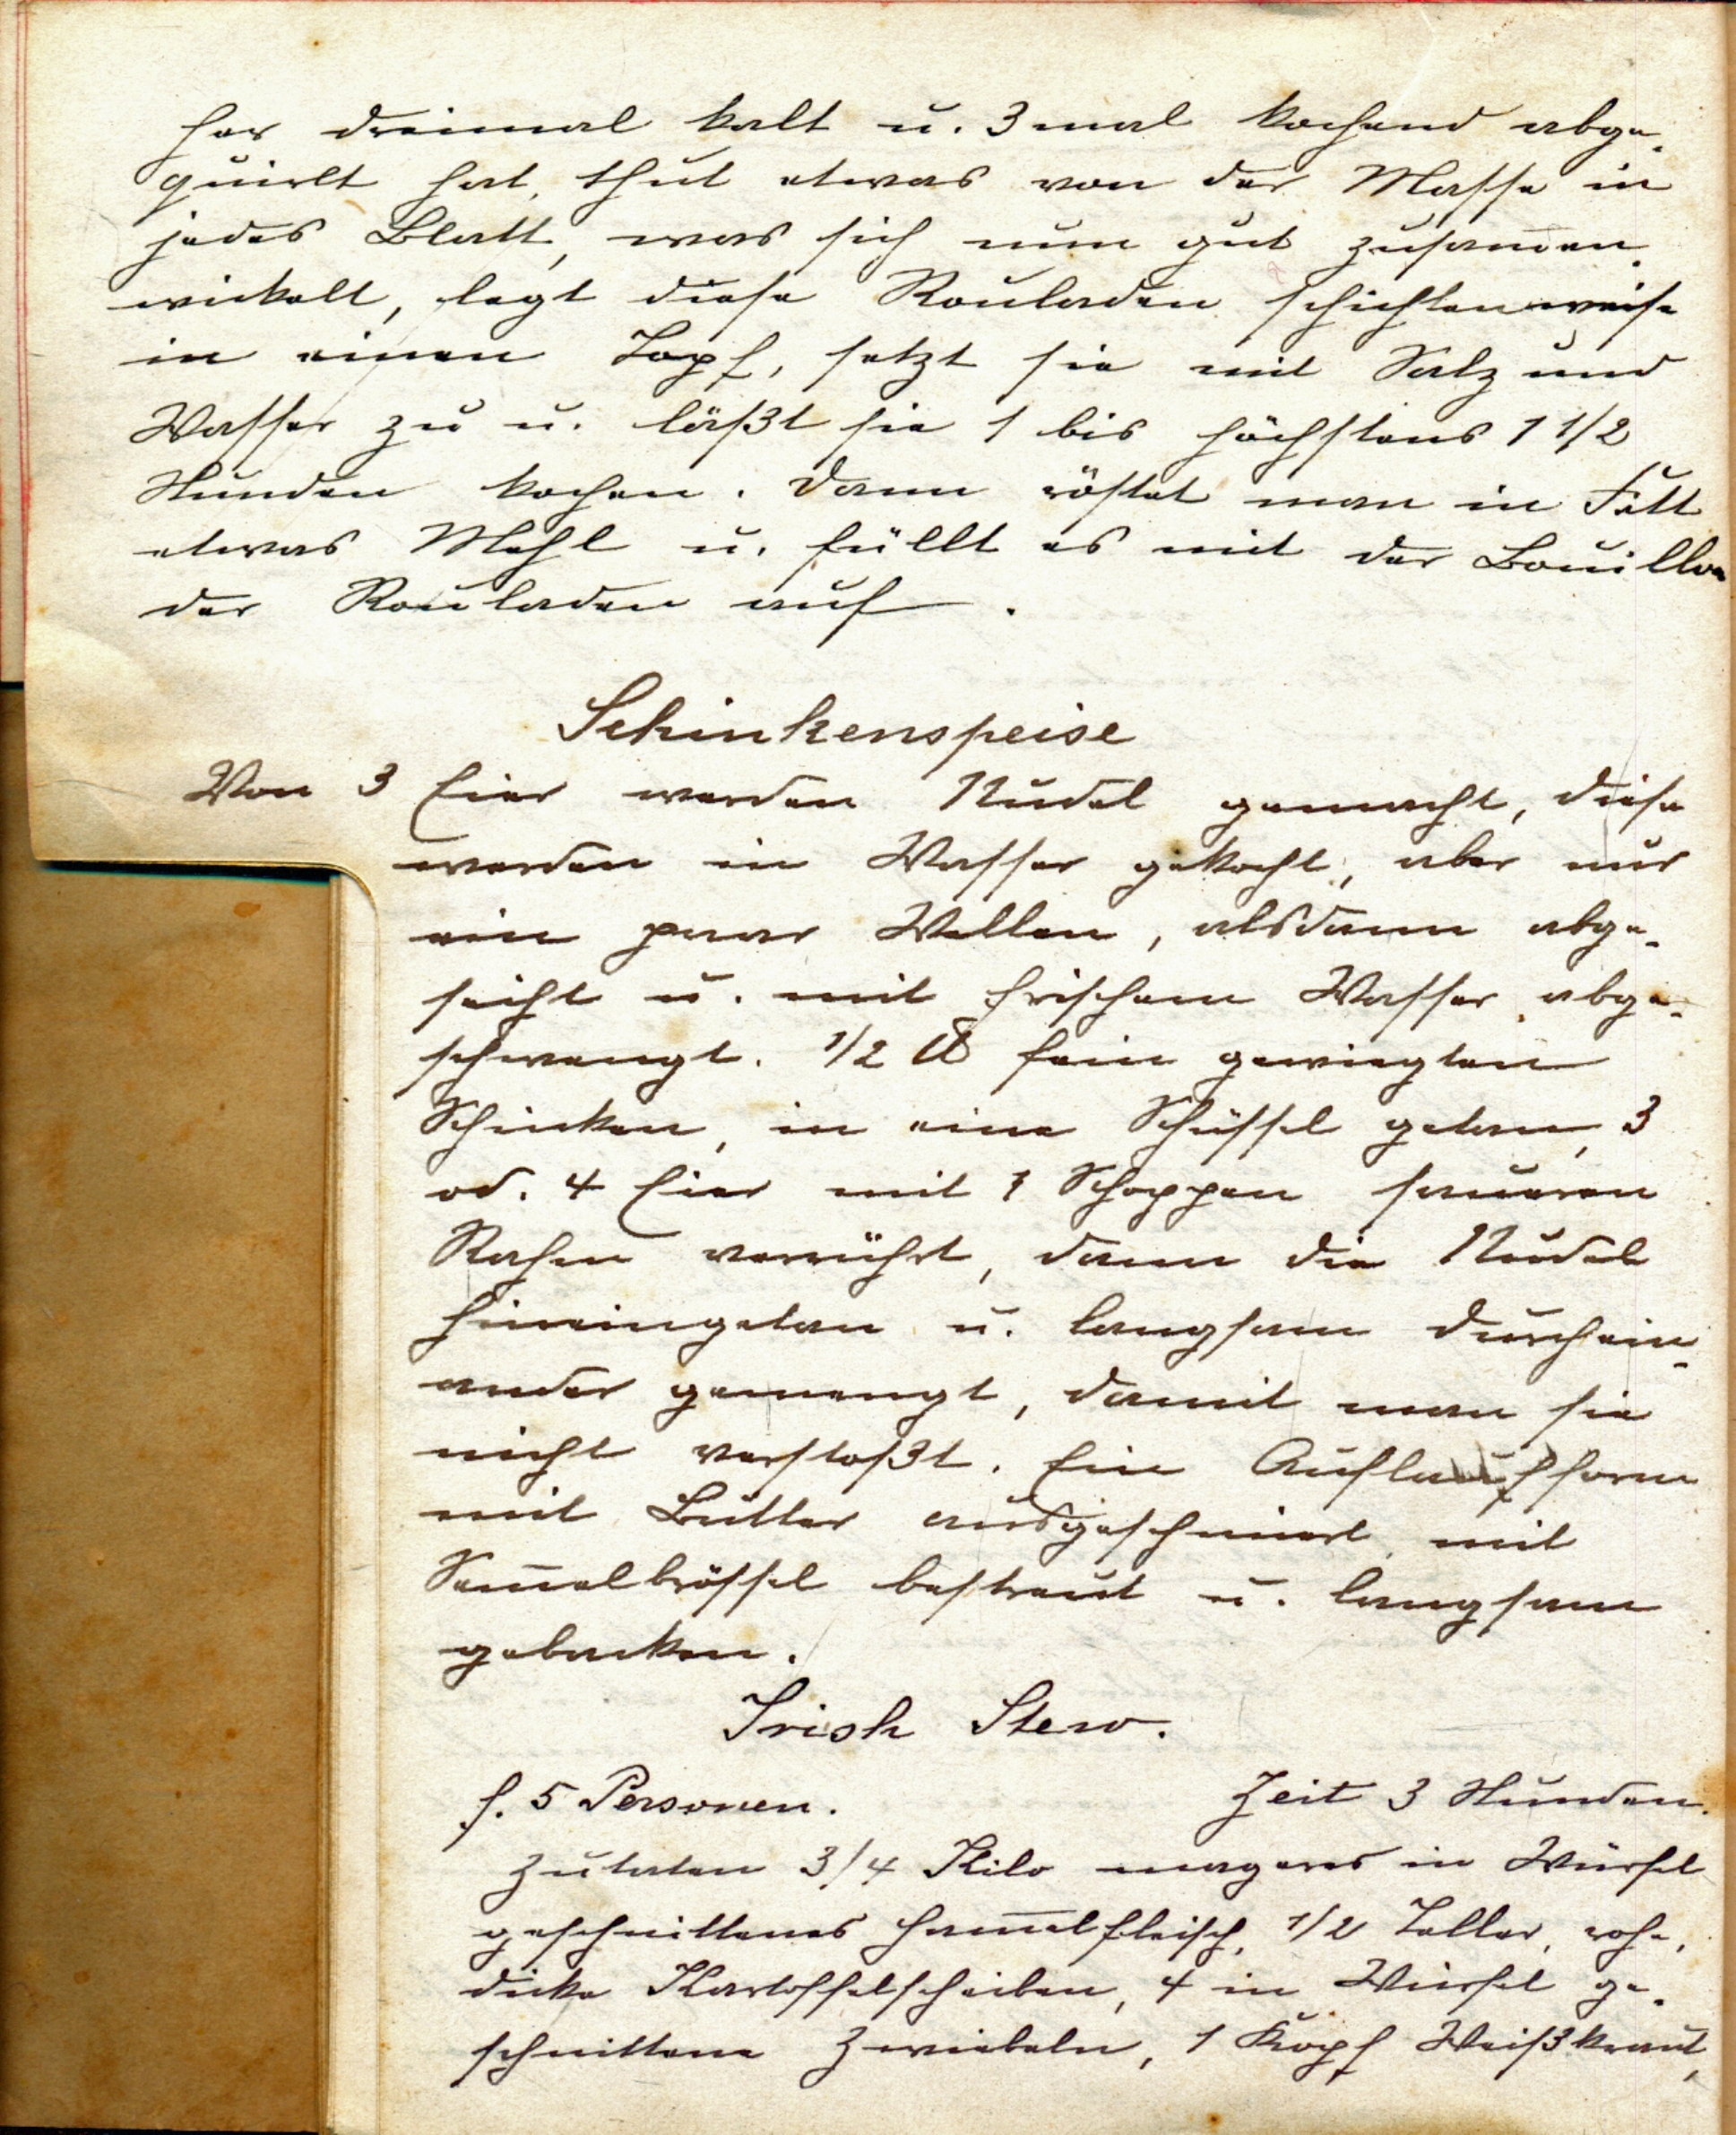 her dreimal kalt u. 3 mal kochend abge-
quirlt hat, thut etwas von der Masse in
jedes Blatt, was sich nun gut zusam̅en-
wickelt, legt diese Rouladen schichtenweise
in einen Topf, setzt sie mit Salz und
Wasser zu u. läßt sie 1 bis höchstens 1 1/2
Stunden kochen. Dann röstet man in Fett
etwas Mehl u. füllt es mit der Bouillon
der Rouladen auf.
Schinkenspeise
Von 3 Eier werden Nudel gemacht, diese
werden in Wasser gekocht, aber nur
ein paar Wellen, alsdann abge-
seiht u. mit frischem Wasser abge-
schwengt. 1/2 ℔ fein gewiegten
Schinken, in eine Schüssel getan, 3
od. 4 Eier mit 1 Schoppen saueren
Rahm verrührt, dann die Nudel
hineingetan u. langsam durchein-
ander gemengt, damit man sie
nicht verstoßt. Ein Auflaufform
mit Butter ausgeschmiert mit
Sem̅elbrössel bestreut u. langsam
gebacken.
Irish Stew.
f. 5 Personen. Zeit 3 Stunden.
Zutaten 3/4 Kilo mageres in Würfel
geschnittenes Ham̅elfleisch, 1/2 Teller, rohe,
dicke Kartoffelscheiben, 4 in Würfel ge-
schnittene Zwiebeln, 1 Kopf Weißkraut,